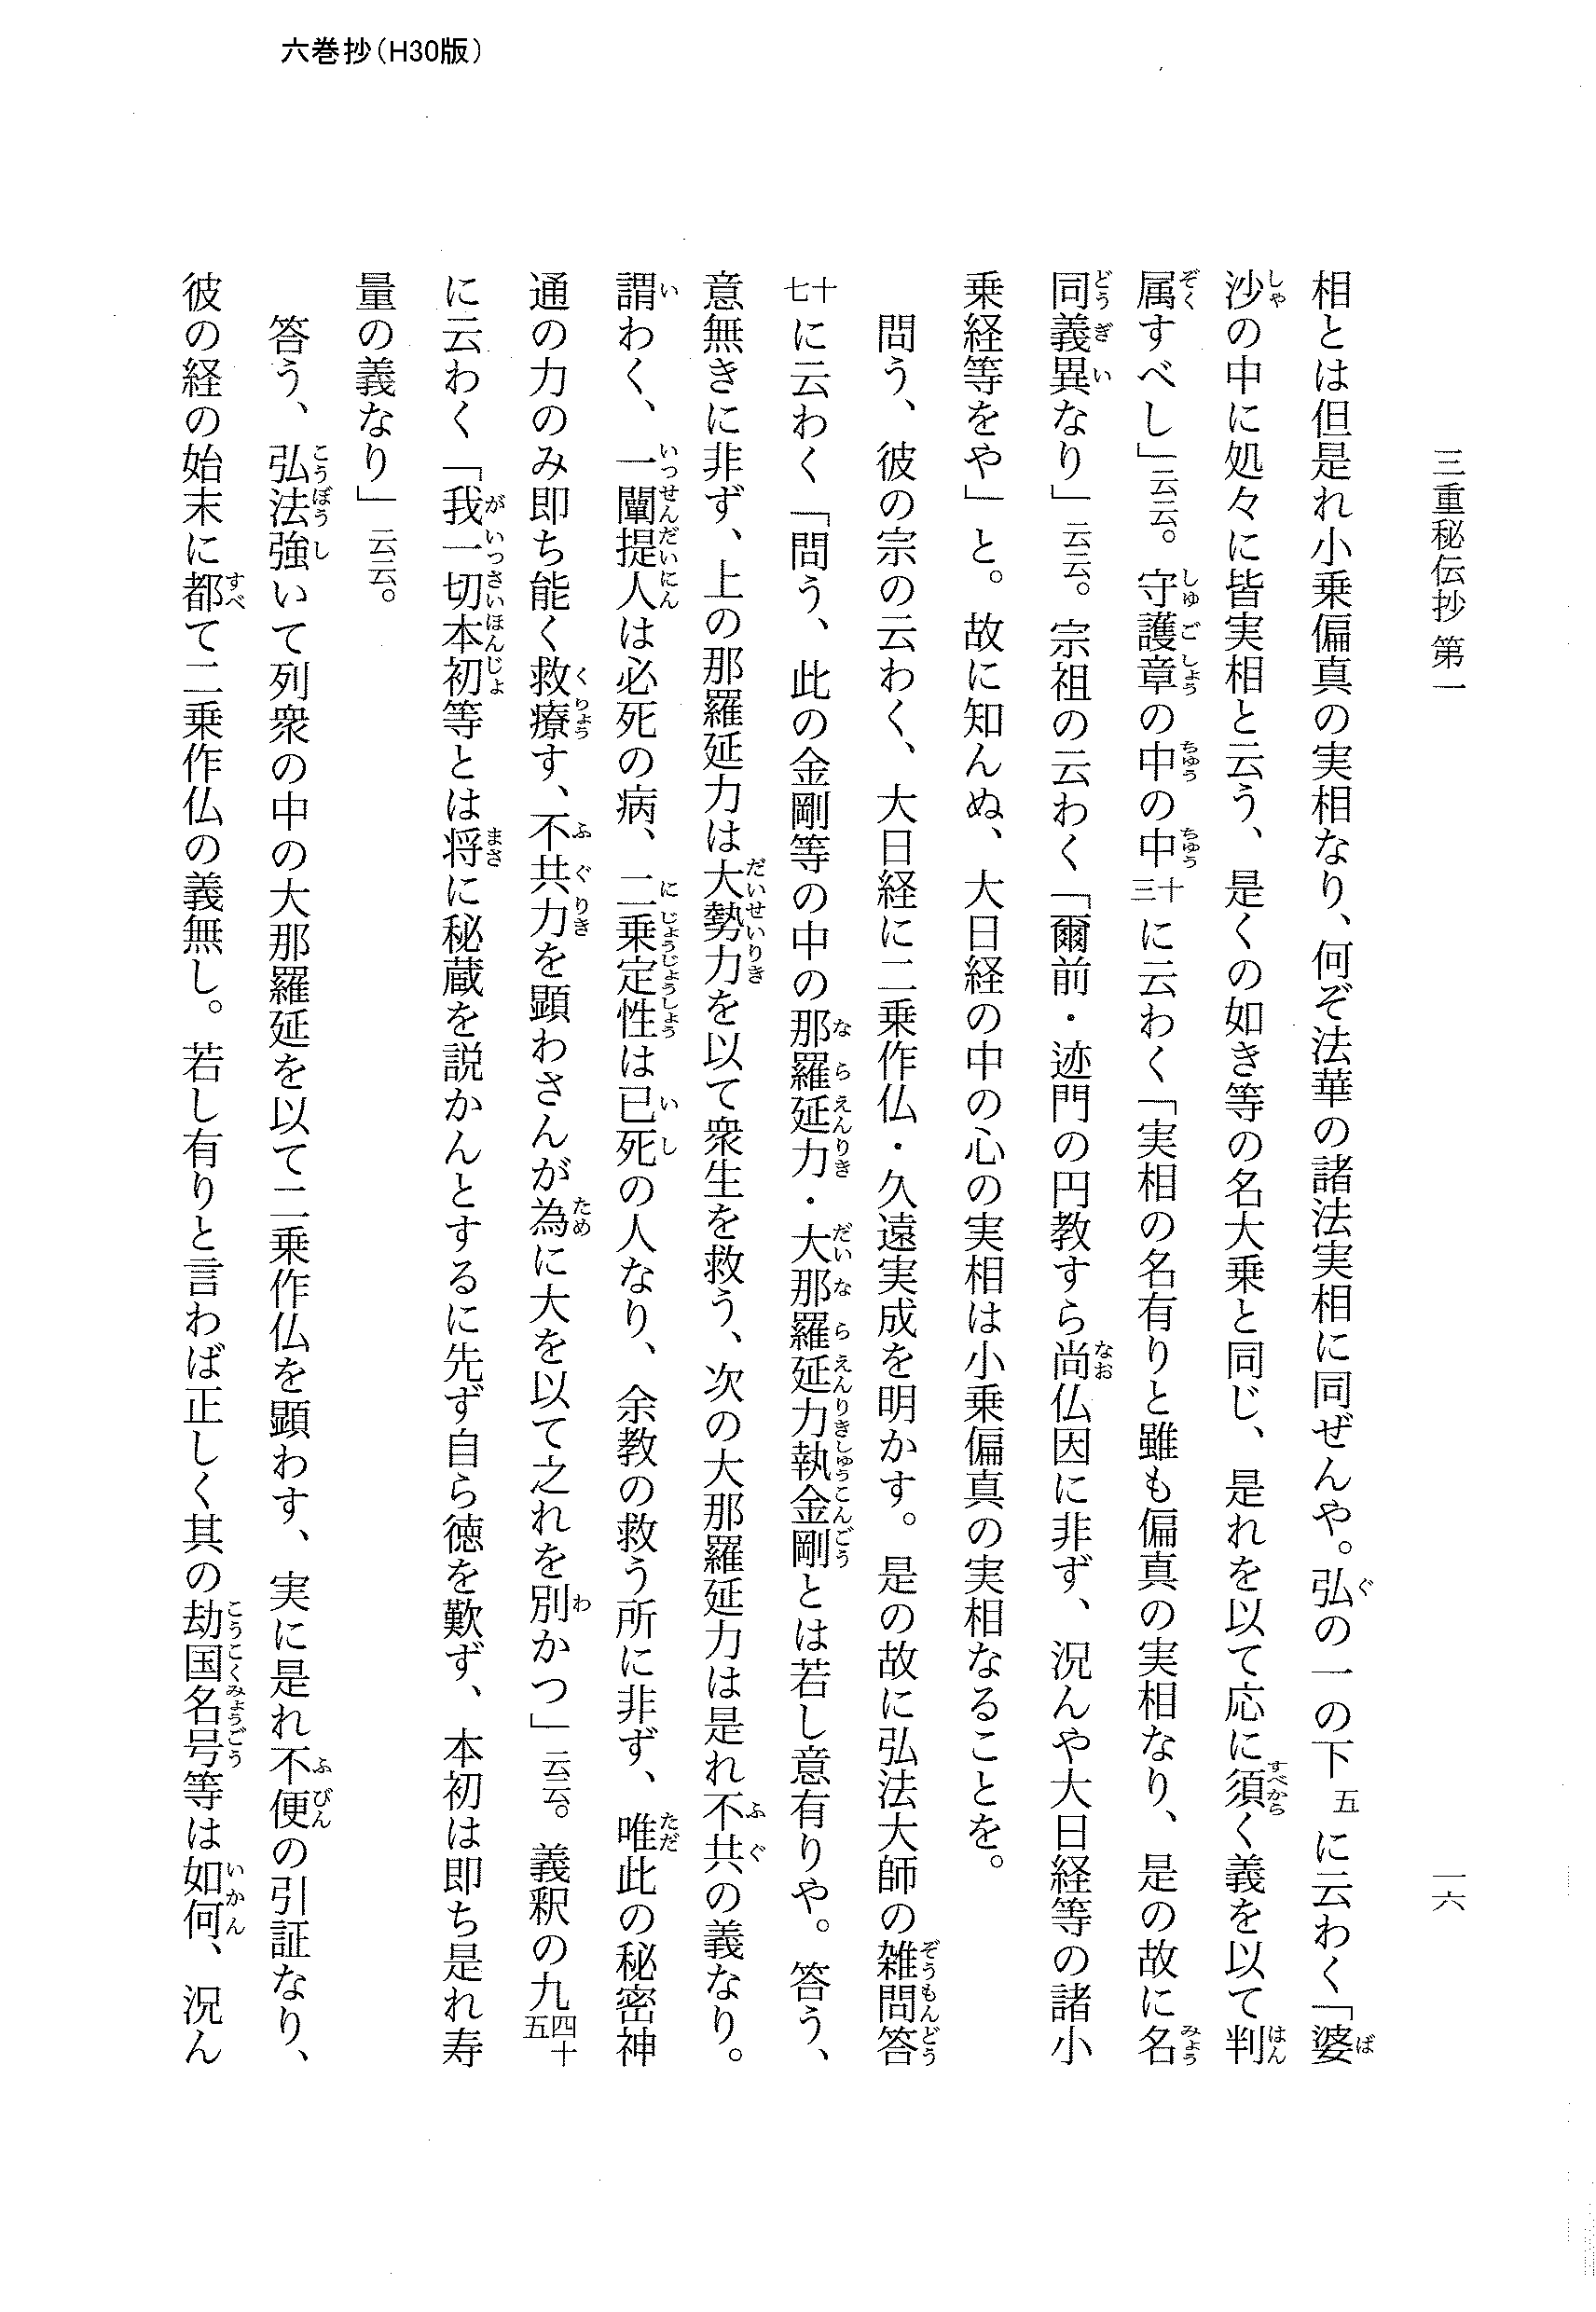 六巻抄（H30版）
三重秘伝抄 第一
一六
相とは但是れ小乗偏真の実相なり、何ぞ法華の諸法実相に同ぜんや。弘の一の下 五 に云わく「婆
沙の中に処々に皆実相と云う、是くの如き等の名大乗と同じ、是れを以て応に須く義を以て判
属すべし」云云。守護章の中の中 十三 に云わく「実相の名有りと雖も偏真の実相なり、是の故に名
同義異なり」云云。宗祖の云わく「爾前・迹門の円教すら尚仏因に非ず、況んや大日経等の諸小
乗経等をや」と。故に知んぬ、大日経の中の心の実相は小乗偏真の実相なることを。
問う、彼の宗の云わく、大日経に二乗作仏・久遠実成を明かす。是の故に弘法大師の雑問答
十七 に云わく「問う、此の金剛等の中の那羅延力・大那羅延力執金剛とは若し意有りや。答う、
意無きに非ず、上の那羅延力は大勢力を以て衆生を救う、次の大那羅延力は是れ不共の義なり。
謂わく、一闡提人は必死の病、二乗定性は已死の人なり、余教の救う所に非ず、唯此の秘密神
通の力のみ即ち能く救療す、不共力を顕わさんが為に大を以て之れを別かつ」云云。義釈の九 四十五
に云わく「我一切本初等とは将に秘蔵を説かんとするに先ず自ら徳を歎ず、本初は即ち是れ寿
量の義なり」云云。
答う、弘法強いて列衆の中の大那羅延を以て二乗作仏を顕わす、実に是れ不便の引証なり、
彼の経の始末に都て二乗作仏の義無し。若し有りと言わば正しく其の劫国名号等は如何、況ん